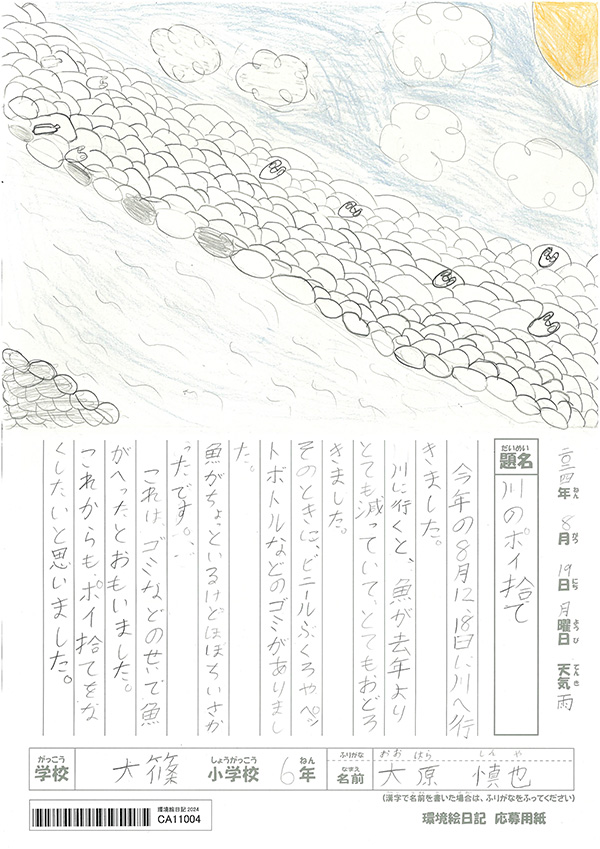 二〇二四年 8月 19日 月曜日 天気 雨
題名 川のポイ捨て
今年の8月12、18日に川へ行
きました。
川に行くと、魚が去年より
とても減っていて、とてもおどろ
きました。
そのときに、ビニールぶくろやペッ
トボトルなどのゴミがありまし
た。
魚がちょっといるけどほぼちいさか
ったです。
これは、ゴミなどのせいで魚
がへったとおもいました。
これからも、ポイ捨てをな
くしたいと思いました。
学校 大篠 小学校 6年
ふりがな おおはら しんや
名前 大原 慎也
(漢字で名前を書いた場合は、ふりがなをふってください)
環境絵日記2024
CA11004
環境絵日記 応募用紙